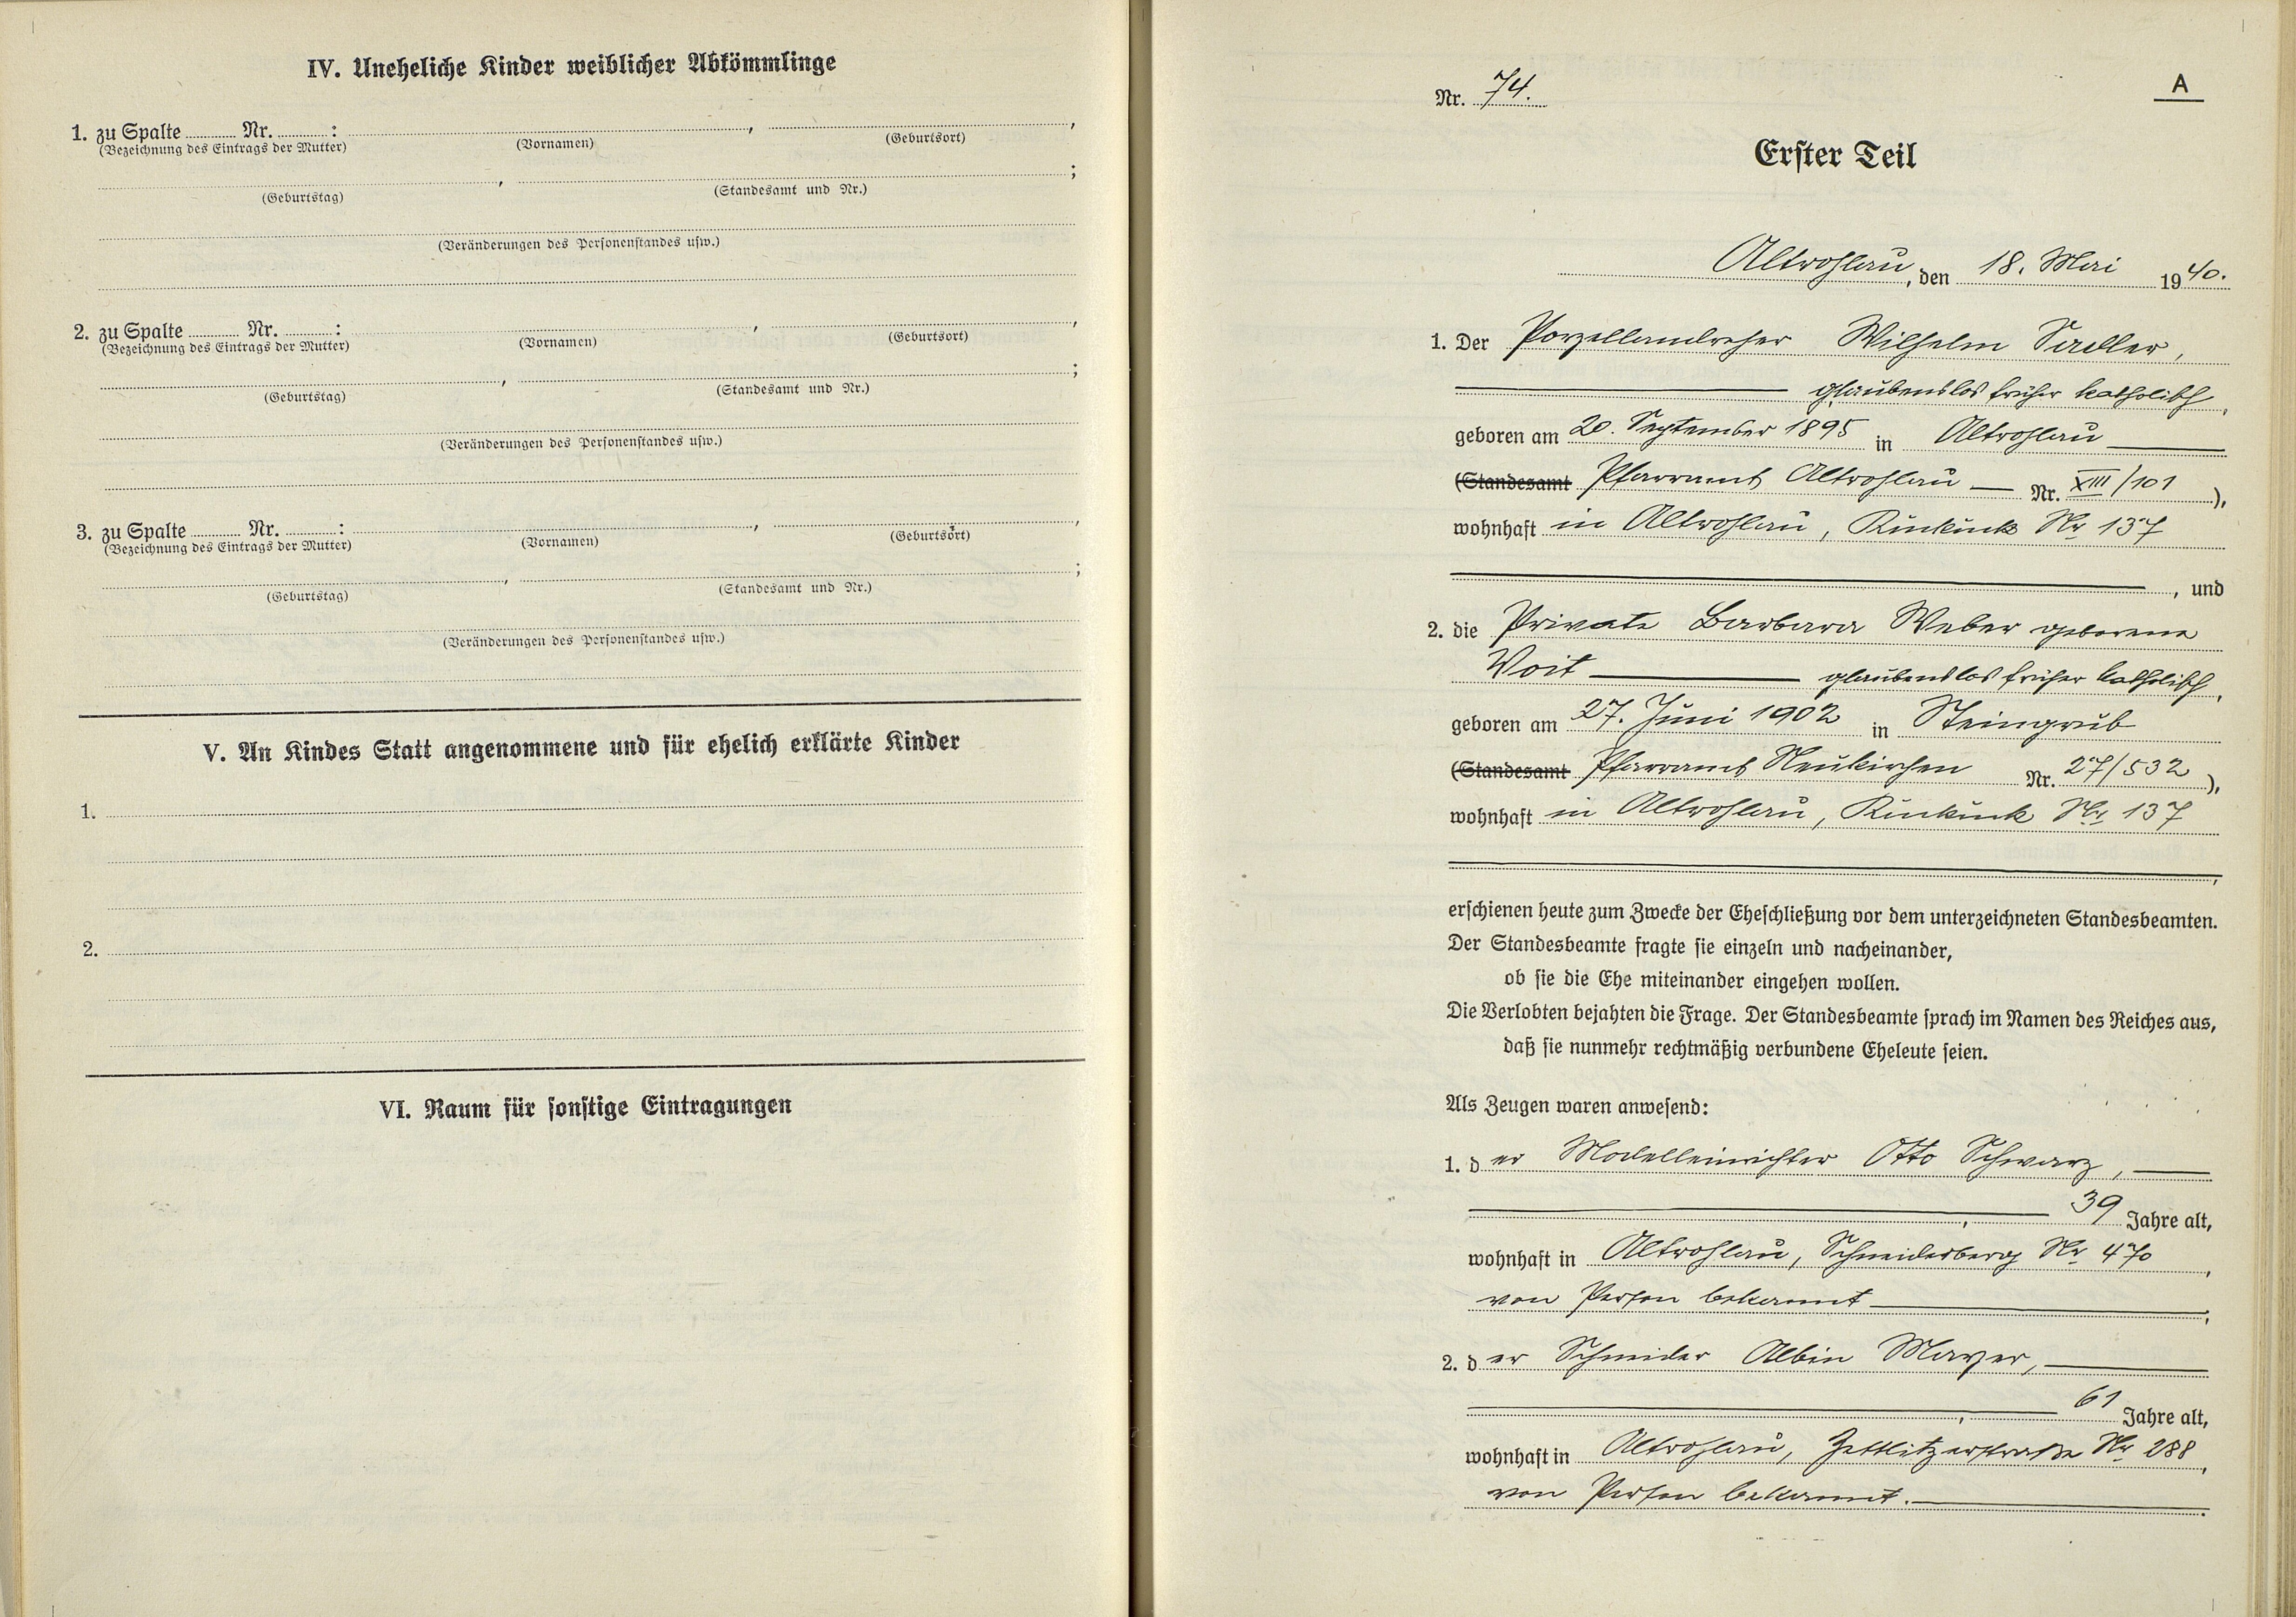 IV. Uneheliche Kinder weiblicher Abkömmlinge
1. zu Spalte Nr. : , ,
(Bezeichnung des Eintrags der Mutter) (Vornamen) (Geburtsort)
, ;
(Geburtstag) (Standesamt und Nr.)
(Veränderungen des Personenstandes usw.)
2. zu Spalte Nr. : , ,
(Bezeichnung des Eintrags der Mutter) (Vornamen) (Geburtsort)
, ;
(Geburtstag) (Standesamt und Nr.)
(Veränderungen des Personenstandes usw.)
3. zu Spalte Nr. : , ,
(Bezeichnung des Eintrags der Mutter) (Vornamen) (Geburtsort)
, ;
(Geburtstag) (Standesamt und Nr.)
(Veränderungen des Personenstandes usw.)
V. An Kindes Statt angenommene und für ehelich erklärte Kinder
1.
2.
VI. Raum für sonstige Eintragungen
Nr. 74. A
Erster Teil
Altrohlau, den 18. Mai 1940.
1. Der Porzellandreher Wilhelm Sadler,
glaubenslos früher katholisch,
geboren am 20. September 1895 in Altrohlau
(Standesamt Pfarramt Altrohlau — Nr. XIII/101),
wohnhaft in Altrohlau, Kuckuck Nr 137
, und
2. die Private Barbara Weber geborene
Voit glaubenslos früher katholisch,
geboren am 27. Juni 1902 in Steingrub
(Standesamt Pfarramt Neukirchen Nr. 27/532),
wohnhaft in Altrohlau, Kuckuck Nr. 137
,
erschienen heute zum Zwecke der Eheschließung vor dem unterzeichneten Standesbeamten.
Der Standesbeamte fragte sie einzeln und nacheinander,
ob sie die Ehe miteinander eingehen wollen.
Die Verlobten bejahten die Frage. Der Standesbeamte sprach im Namen des Reiches aus,
daß sie nunmehr rechtmäßig verbundene Eheleute seien.
Als Zeugen waren anwesend:
1. der Modelleinrichter Otto Schwarz,
, 39 Jahre alt,
wohnhaft in Altrohlau, Schneiderberg Nr 470,
von Person bekannt ;
2. der Schneider Albin Mayer,
, 61 Jahre alt,
wohnhaft in Altrohlau, Zettlitzerstraße Nr 288,
von Person bekannt.